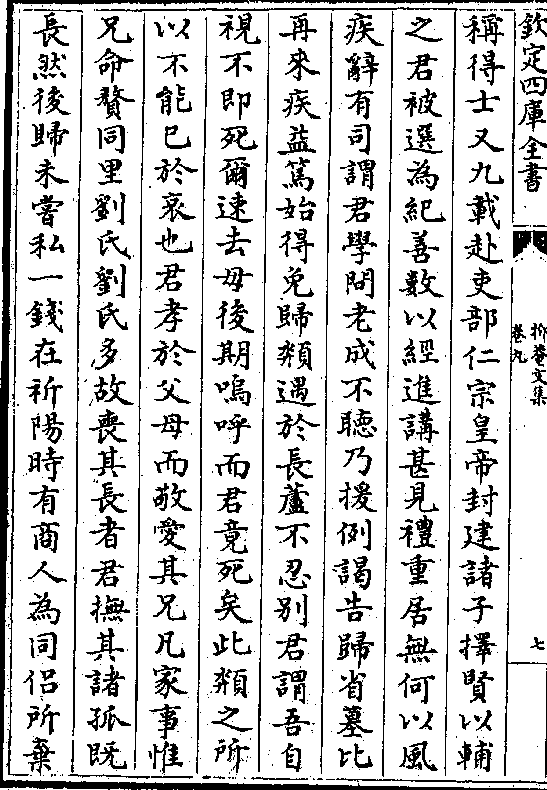 欽定四庫全書
抑菴文集
卷九
七
稱得士又九載赴吏部仁宗皇帝封建諸子擇賢以輔
之君被選為紀善數以經進講甚見禮重居無何以風
疾辭有司謂君學問老成不聽乃援例謁告歸省墓比
再來疾益篤始得免歸類遇於長蘆不忍別君謂吾自
視不即死爾速去毋後期嗚呼而君竟死矣此類之所
以不能已於哀也君孝於父母而敬愛其兄凡家事惟
兄命贅同里劉氏劉氏多故喪其長者君撫其諸孤既
長然後歸未嘗私一錢在祈陽時有商人為同侣所棄